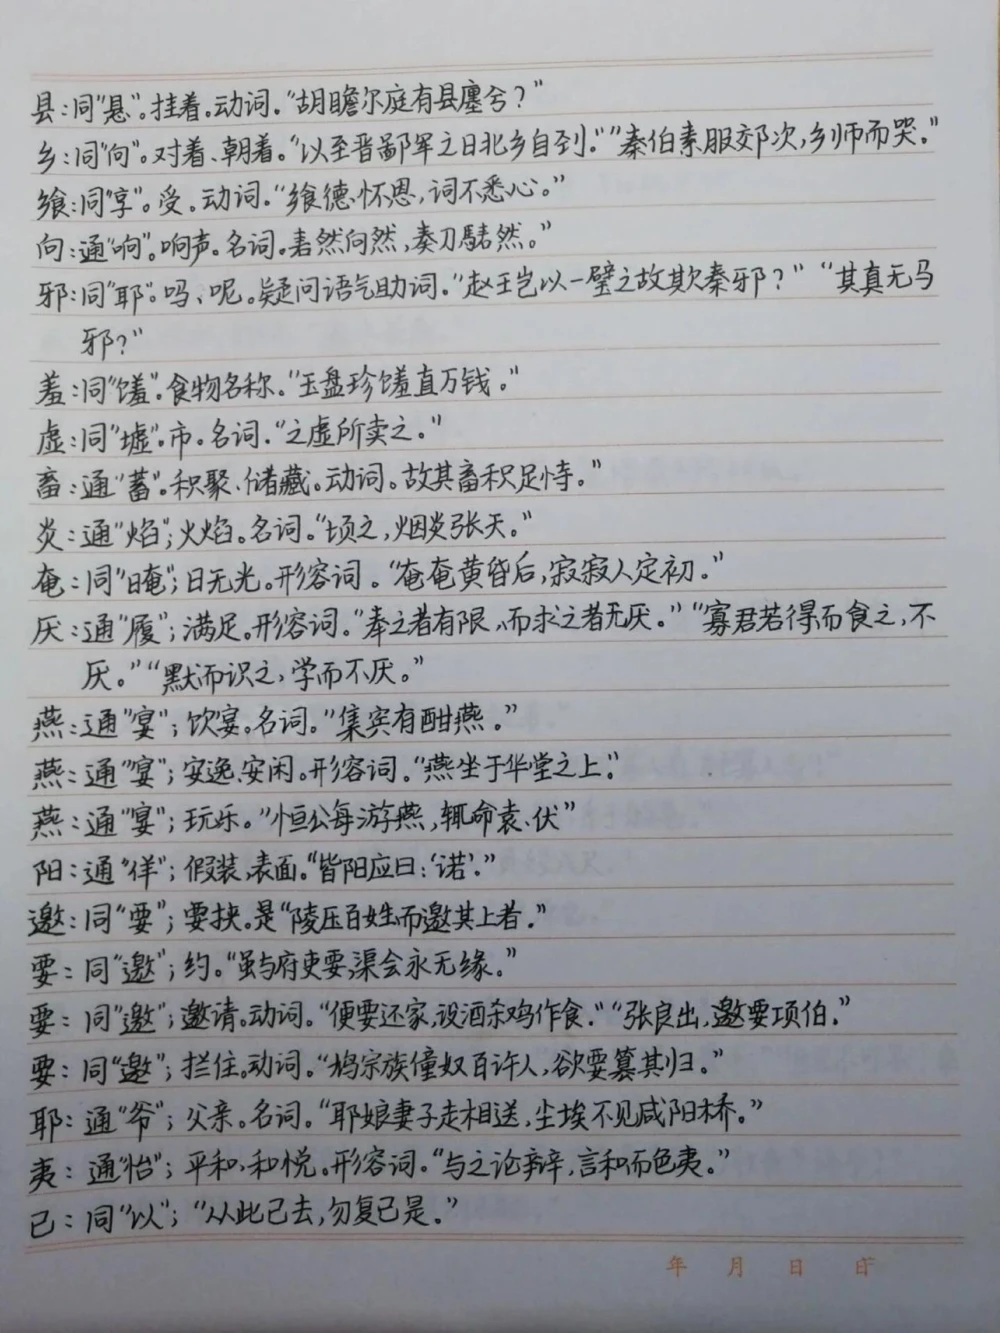 县：同“悬”。挂着。动词。“胡瞻尔庭有县廛兮？”
乡：同“向”。对着、朝着。“以至晋鄙军之日北乡自刭。”“秦伯素服郊次，乡师而哭。”
飨：同“享”。受。动词。“飨德怀恩，词不悉心。”
向：通“响”。响声。名词。砉然向然，奏刀騞然。”
邪：同“耶”。吗、呢。疑问语气助词。“赵王岂以一璧之故欺秦邪？”“其真无马
邪？”
羞：同“馐”。食物名称。“玉盘珍馐直万钱。”
虚：同“墟”。市。名词。“之虚所卖之。”
畜：通“蓄”。积聚、储藏。动词。故其畜积足恃。”
炎：通“焰”；火焰。名词。“顷之，烟炎张天。”
奄：同“晻”；日无光。形容词。“奄奄黄昏后，寂寂人定初。”
厌：通“履”；满足。形容词。“奉之者有限，而求之者无厌。”“寡君若得而食之，不
厌。”“默而识之，学而不厌。”
燕：通“宴”；饮宴。名词。“集宾有酣燕。”
燕：通“宴”；安逸、安闲。形容词。“燕坐于华堂之上。”
燕：通“宴”；玩乐。“恒公每游燕，辄命袁、伏”
阳：通“佯”；假装，表面。“皆阳应曰：‘诺’。”
邀：同“要”；要挟。是“陵压百姓而邀其上者。”
要：同“邀”；约。“虽与府吏要，渠会永无缘。”
要：同“邀”；邀请。动词。“便要还家，设酒杀鸡作食。”“张良出，邀要项伯。”
要：同“邀”；拦住。动词。“鸠宗族僮奴百许人，欲要篡其归。”
耶：通“爷”；父亲。名词。“耶娘妻子走相送，尘埃不见咸阳桥。”
夷：通“怡”；平和，和悦。形容词。“与之论辩，言和而色夷。”
已：同“以”；“从此已去，勿复已是。”
年 月 日